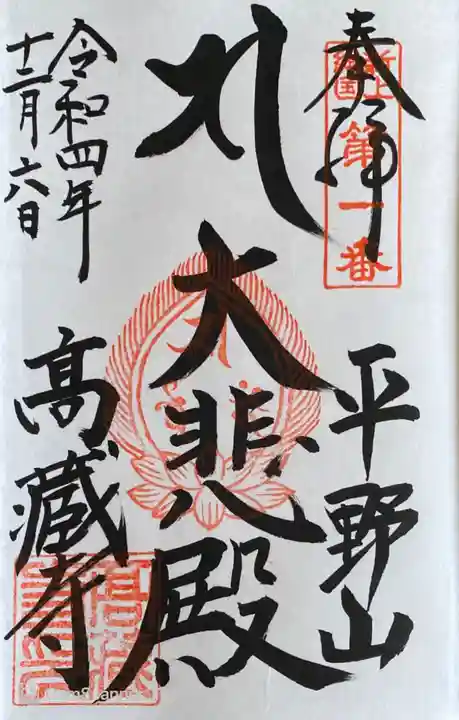 奉拝
新上総国
第一番
平野山
大悲殿
令和四年
十二月六日
高蔵寺